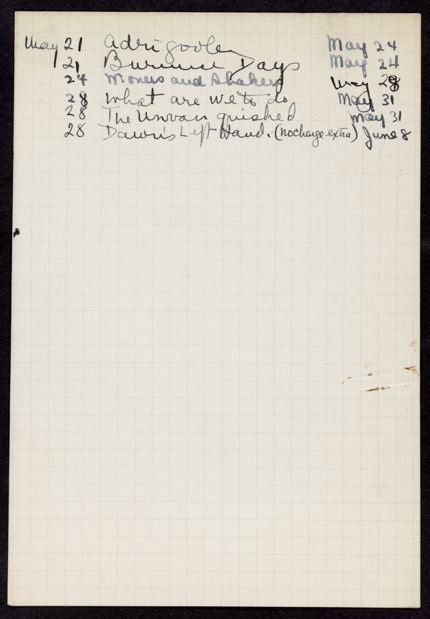 May 21 Adrigoole May 24
21 Burning Days May 24
24 Movers and Shakers May 28
28 What are we to do May 31
28 The Unvanquished May 31
28 Dawn's Left Hand. (no charge extra) June 8